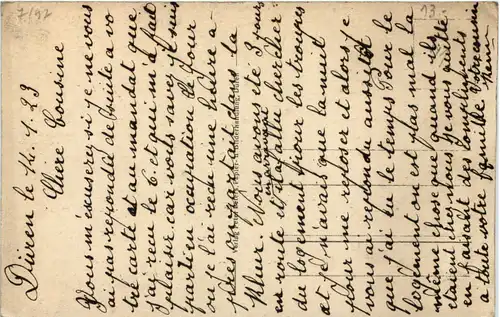 7/92
13.-
Düren le 14.1.23
Chère Cousine
Vous m'excuserez si je ne vous
ai pas répondu de suite a vo
tre carte et au mandat que
j'ai reçu le 6. et qui m'a fait
plaisir car vous savez j'suis
parti en occupation le jour
ou je l'ai reçu une heure a-
près et on était dans la
Rhur. Nous avons été 3 jours
en route et il a fallu chercher
du logement pour les troupes
et je n'avais que la nuit
pour me reposer et alors je
vous ai répondu aussitôt
que j'ai eu le temps. Pour le
logement on est pas mal la
même chose que quand ils
étaient chez nous je vous quitte
en faisant des compliments
a toute votre famille Votre cousin